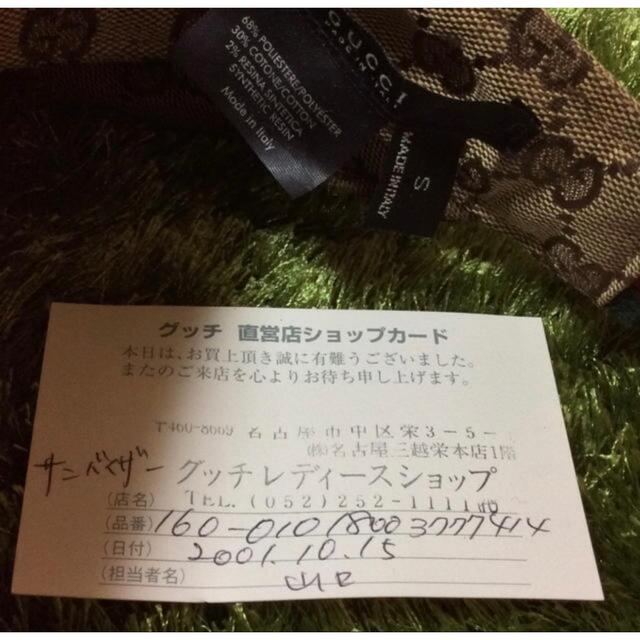 GUCCI
MADE IN ITALY
68% POLIESTERE/POLYESTER
30% COTONE/COTTON
2% RESINA SINTETICA
SYNTHETIC RESIN
Made in Italy
S
MADE IN ITALY
グッチ 直営店ショップカード
本日は、お買上頂き誠に有難うございました。
またのご来店を心よりお待ち申し上げます。
〒460-8669 名古屋市中区栄3-5-
㈱名古屋三越栄本店1階
サンバイザー グッチレディースショップ
(店名) TEL.(052)252-1111㈹
(品番) 160-010 1800 3777414
(日付) 2001.10.15
(担当者名) 山口